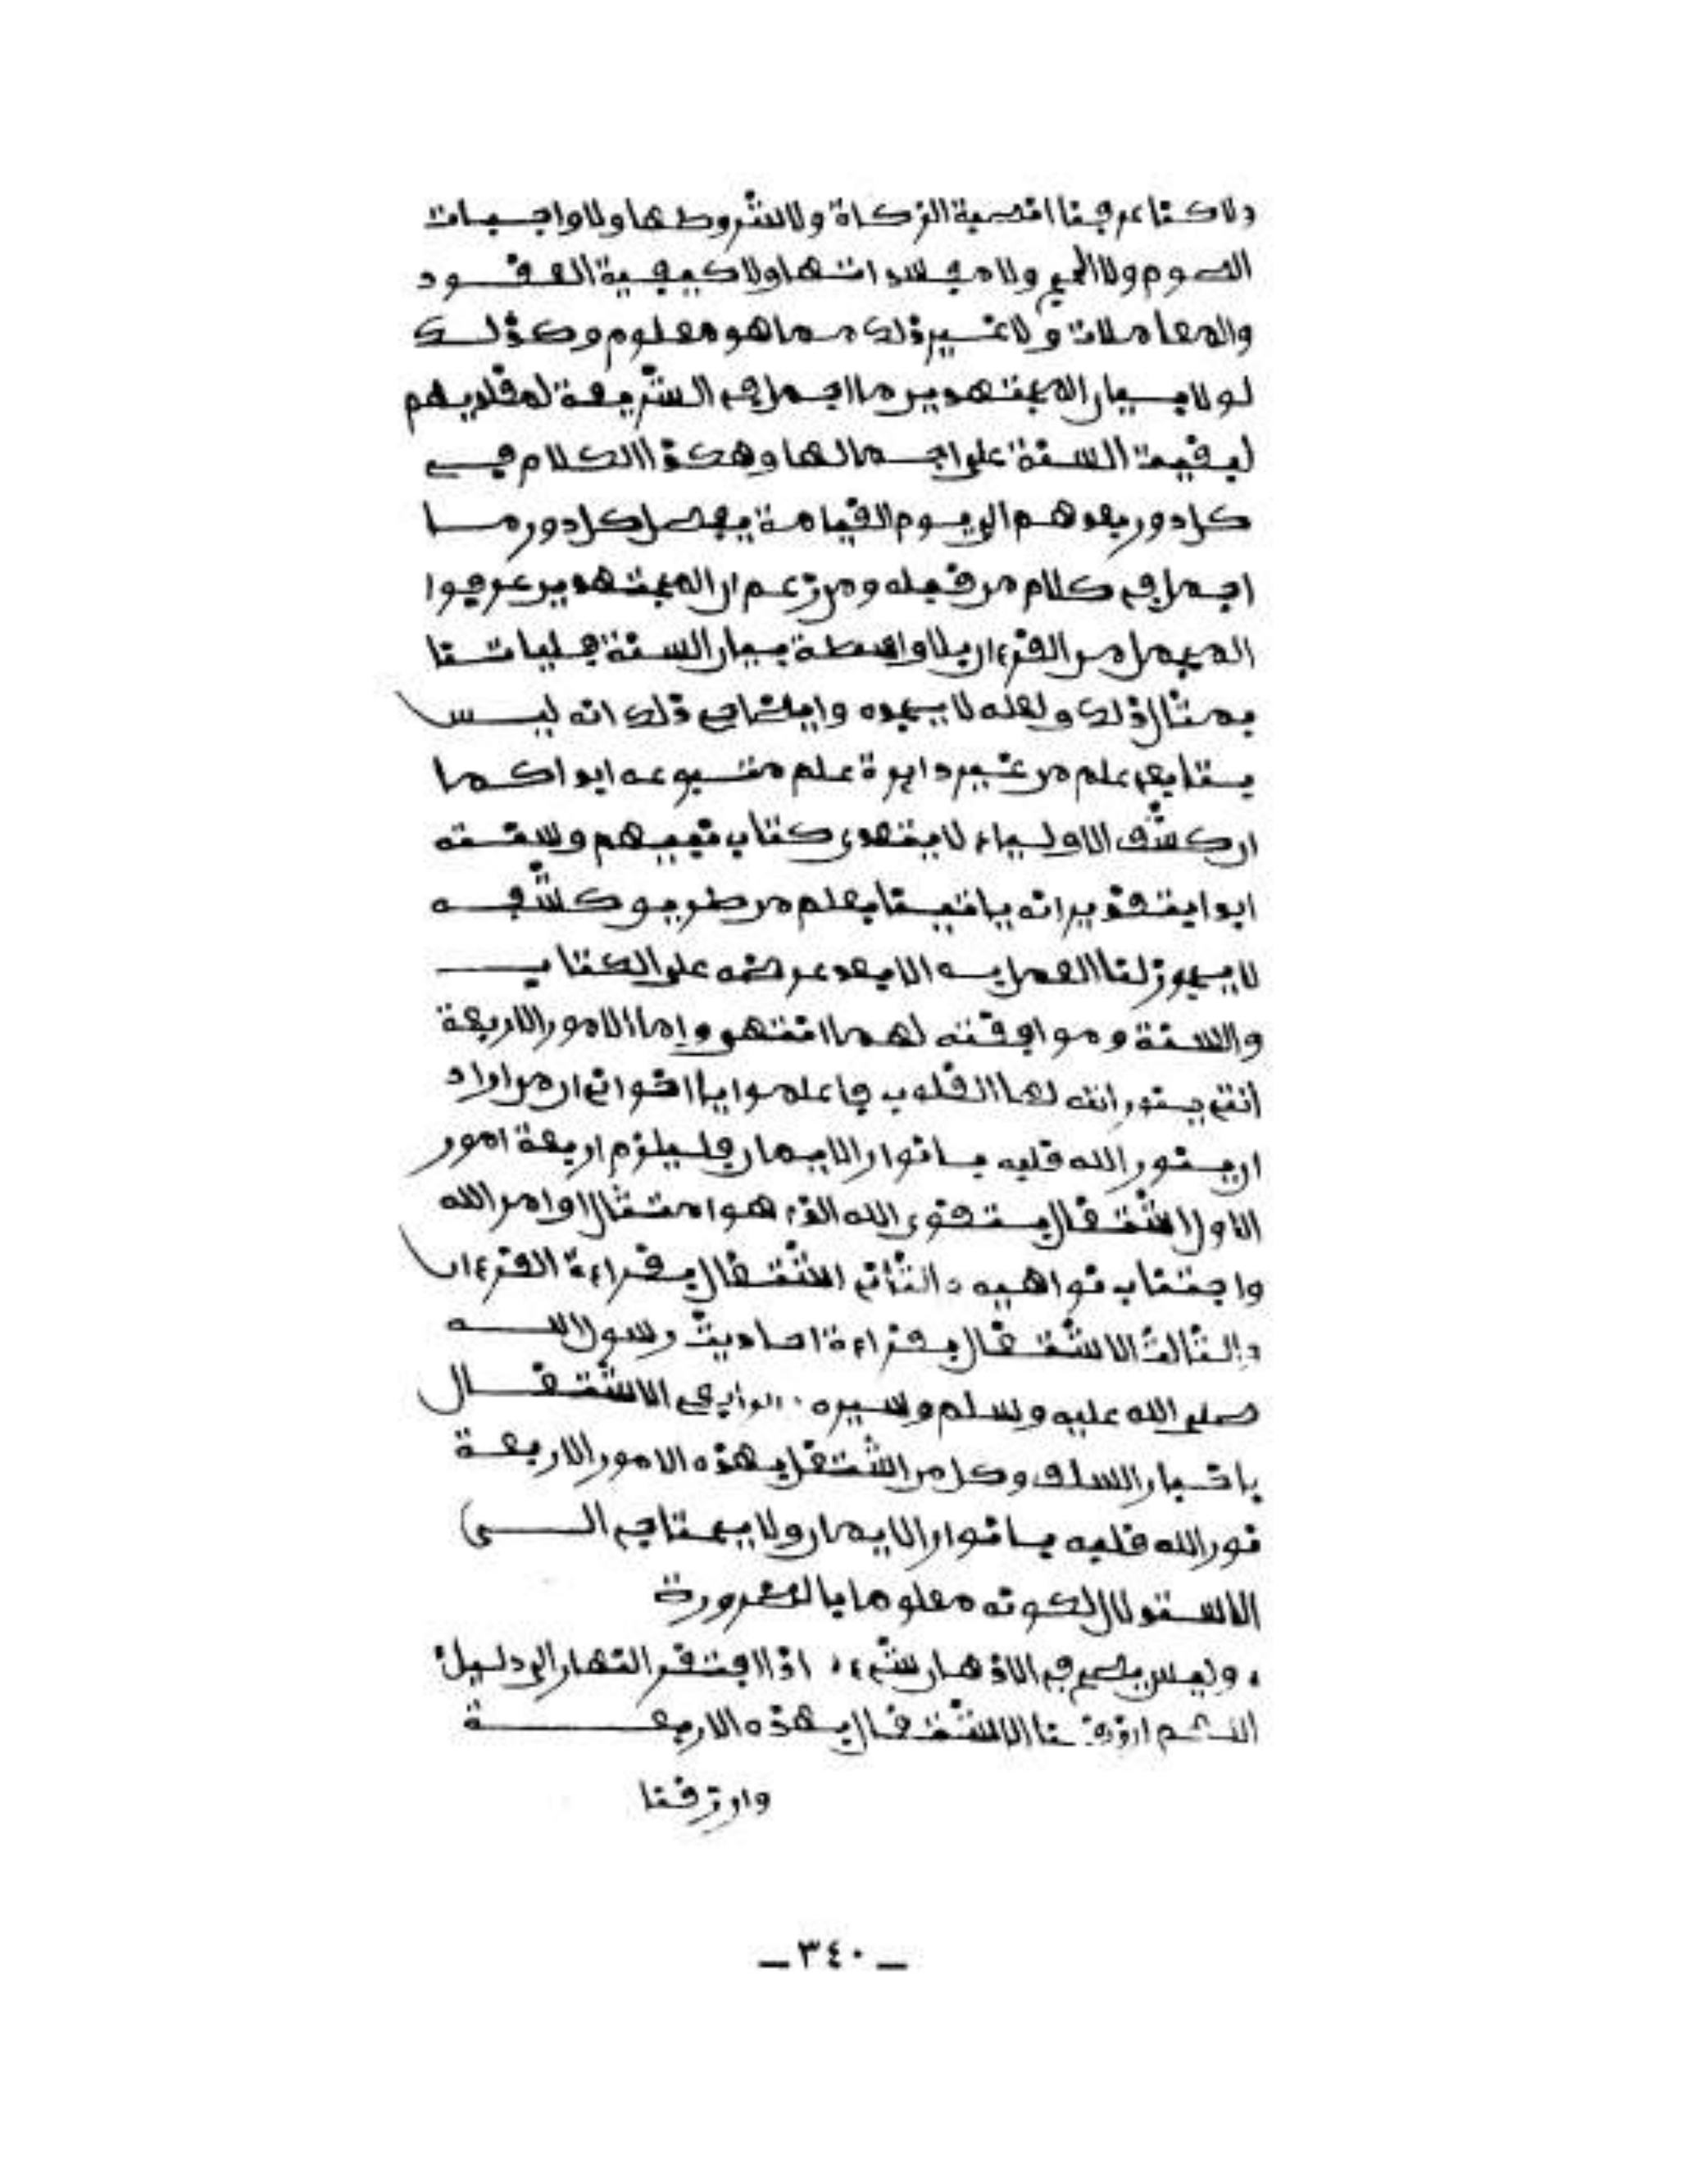 ولا كنا عرفنا انصبة الزكاة ولا شروطها ولا واجبات
الصوم ولا الحج ولا مفسداتها ولا كيفية العقود
والمعاملات ولا غير ذلك مما هو معلوم وكذلك
لولا بيان المجتهدين ما اجمل في الشريعة لمقلديهم
لبقيت السنة على اجمالها وهكذا الكلام في
كل دور بعدهم الى يوم القيامة يفصل كل دور ما
اجمل في كلام من قبله ومن زعم ان المجتهدين عرفوا
المجمل من القرءان بلا واسطة بيان السنة فلياتنا
بمثال ذلك ولعله لا يجده وايضاح ذلك انه ليس
يتابع علم من غير دايرة علم متبوعه ابدا كما
ان كشف الاولياء لا يتعدى كتاب نبيهم وسنته
ابدا بتقدير انه ياتينا بعلم من طريق كشفه
لا يجوز لنا العمل به الا بعد عرضه على الكتاب
والسنة وموافقته لهما انتهى واما الامور الاربعة
التي ينور الله لها القلوب فاعلموا يا اخواني ان من اراد
ان ينور الله قلبه بانوار الايمان فليلزم اربعة امور
الاول اشتغال بتقوى الله الذي هو امتثال اوامر الله
واجتناب نواهيه والثاني اشتغال بقراءة القرءان
والثالث الاشتغال بقراءة احاديث رسول الله
صلى الله عليه وسلم وسيره والرابع الاشتغال
باخبار السلف وكل من اشتغل بهذه الامور الاربعة
نور الله قلبه بانوار الايمان ولا يحتاج الى
الاستدلال لكونه معلوما بالضرورة
وليس يصح في الاذهان شيء اذا افتقر النهار الى دليل
اللهم ارزقنا الاشتغال بهذه الاربعة
وارزقنا
ـ ٣٤٠ ـ